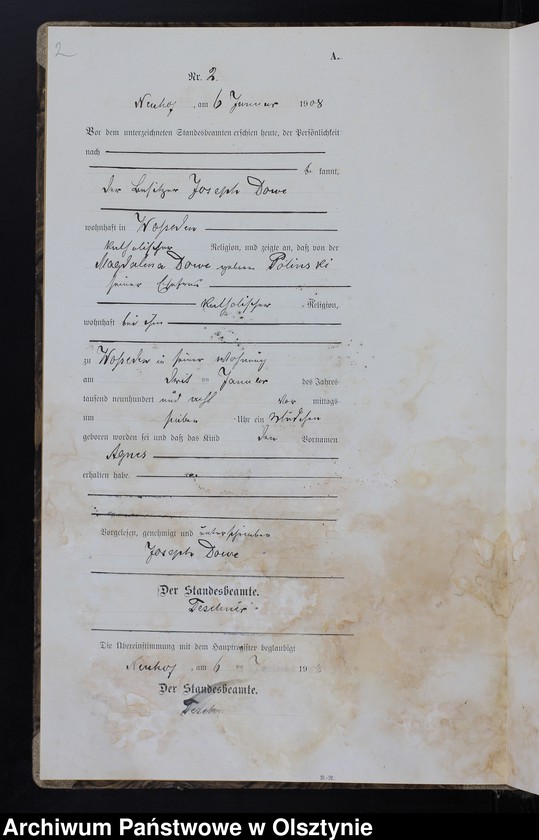 2
A.
Nr. 2.
Neuhof, am 6 Januar 1908
Vor dem unterzeichneten Standesbeamten erschien heute, der Persönlichkeit
nach
kannt,
der Besitzer Joseph Dowe
wohnhaft in Woppeden
katholischer Religion, und zeigte an, daß von der
Magdalena Dowe geborn Polinski
seiner Ehefrau
katholischer Religion,
wohnhaft bei ihm
zu in seiner Wohnung
am Januar des Jahres
tausend neunhundert und acht vor mittags
um sieben Uhr ein Mädchen
geboren worden sei und daß das Kind den Vornamen
Agnes
erhalten habe.
Vorgelesen, genehmigt und unterschrieben
Joseph Dowe
Der Standesbeamte.
Die Übereinstimmung mit dem Hauptregister beglaubigt
Neuhof, am 6 19
Der Standesbeamte.
Archiwum Państwowe w Olsztynie